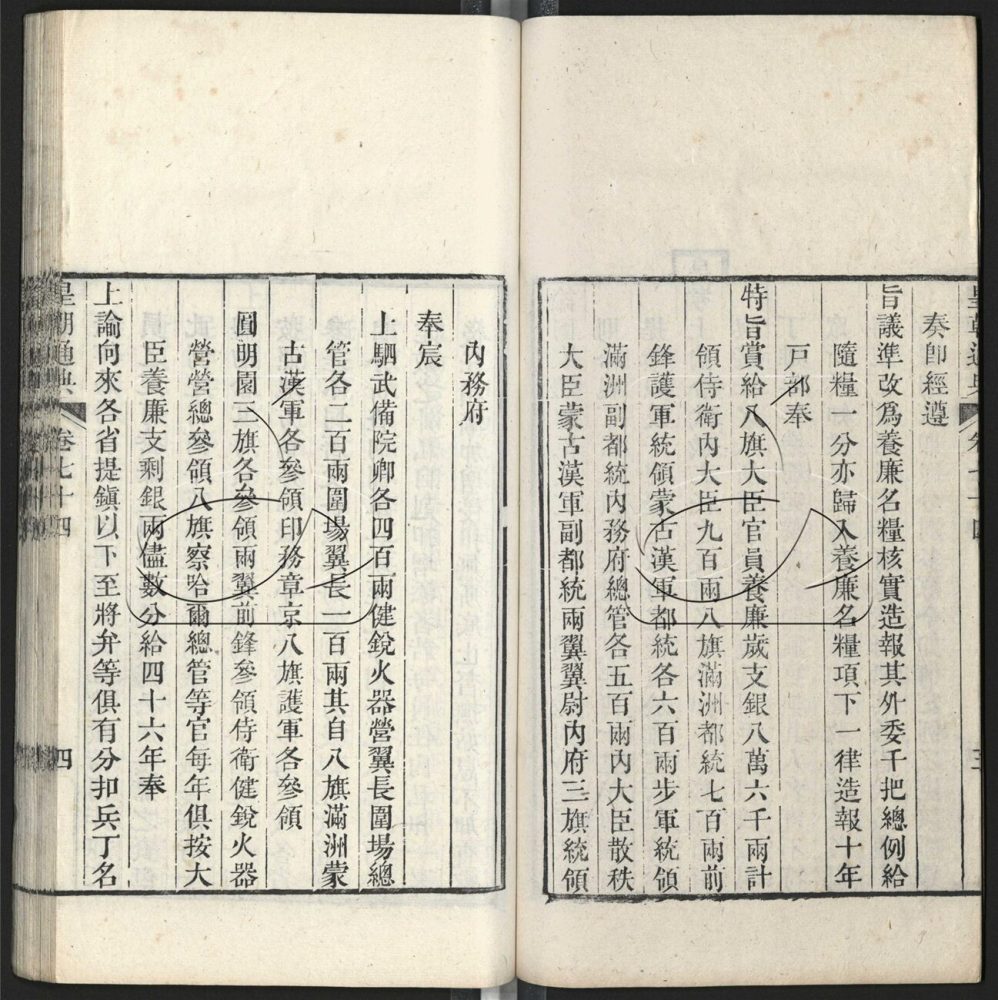 奏卽經遵
旨議準改爲養廉名糧核實造報其外委千把總例給
隨糧一分亦歸入養廉名糧項下一律造報十年
戸部奉
特旨賞給八旗大臣官員養廉歲支銀八萬六千兩計
領侍衞內大臣九百兩八旗滿洲都統七百兩前
鋒護軍統領蒙古漢軍都統各六百兩步軍統領
滿洲副都統內務府總管各五百兩內大臣散秩
大臣蒙古漢軍副都統兩翼翼尉內府三旗統領
內務府
奉宸
上駟武備院卿各四百兩健銳火器營翼長圍場總
管各二百兩圍場翼長一百兩其自八旗滿洲蒙
古漢軍各參領印務章京八旗護軍各參領
圓明園三旗各參領兩翼前鋒參領侍衞健銳火器
營營總參領八旗察哈爾總管等官每年俱按大
臣養廉支剩銀兩儘數分給四十六年奉
上諭向來各省提鎭以下至將弁等俱有分扣兵丁名
皇朝通典 卷七十四 四